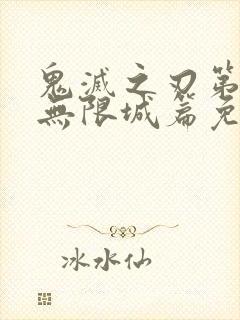 鬼滅之刃第
無限城篇免
冰水仙